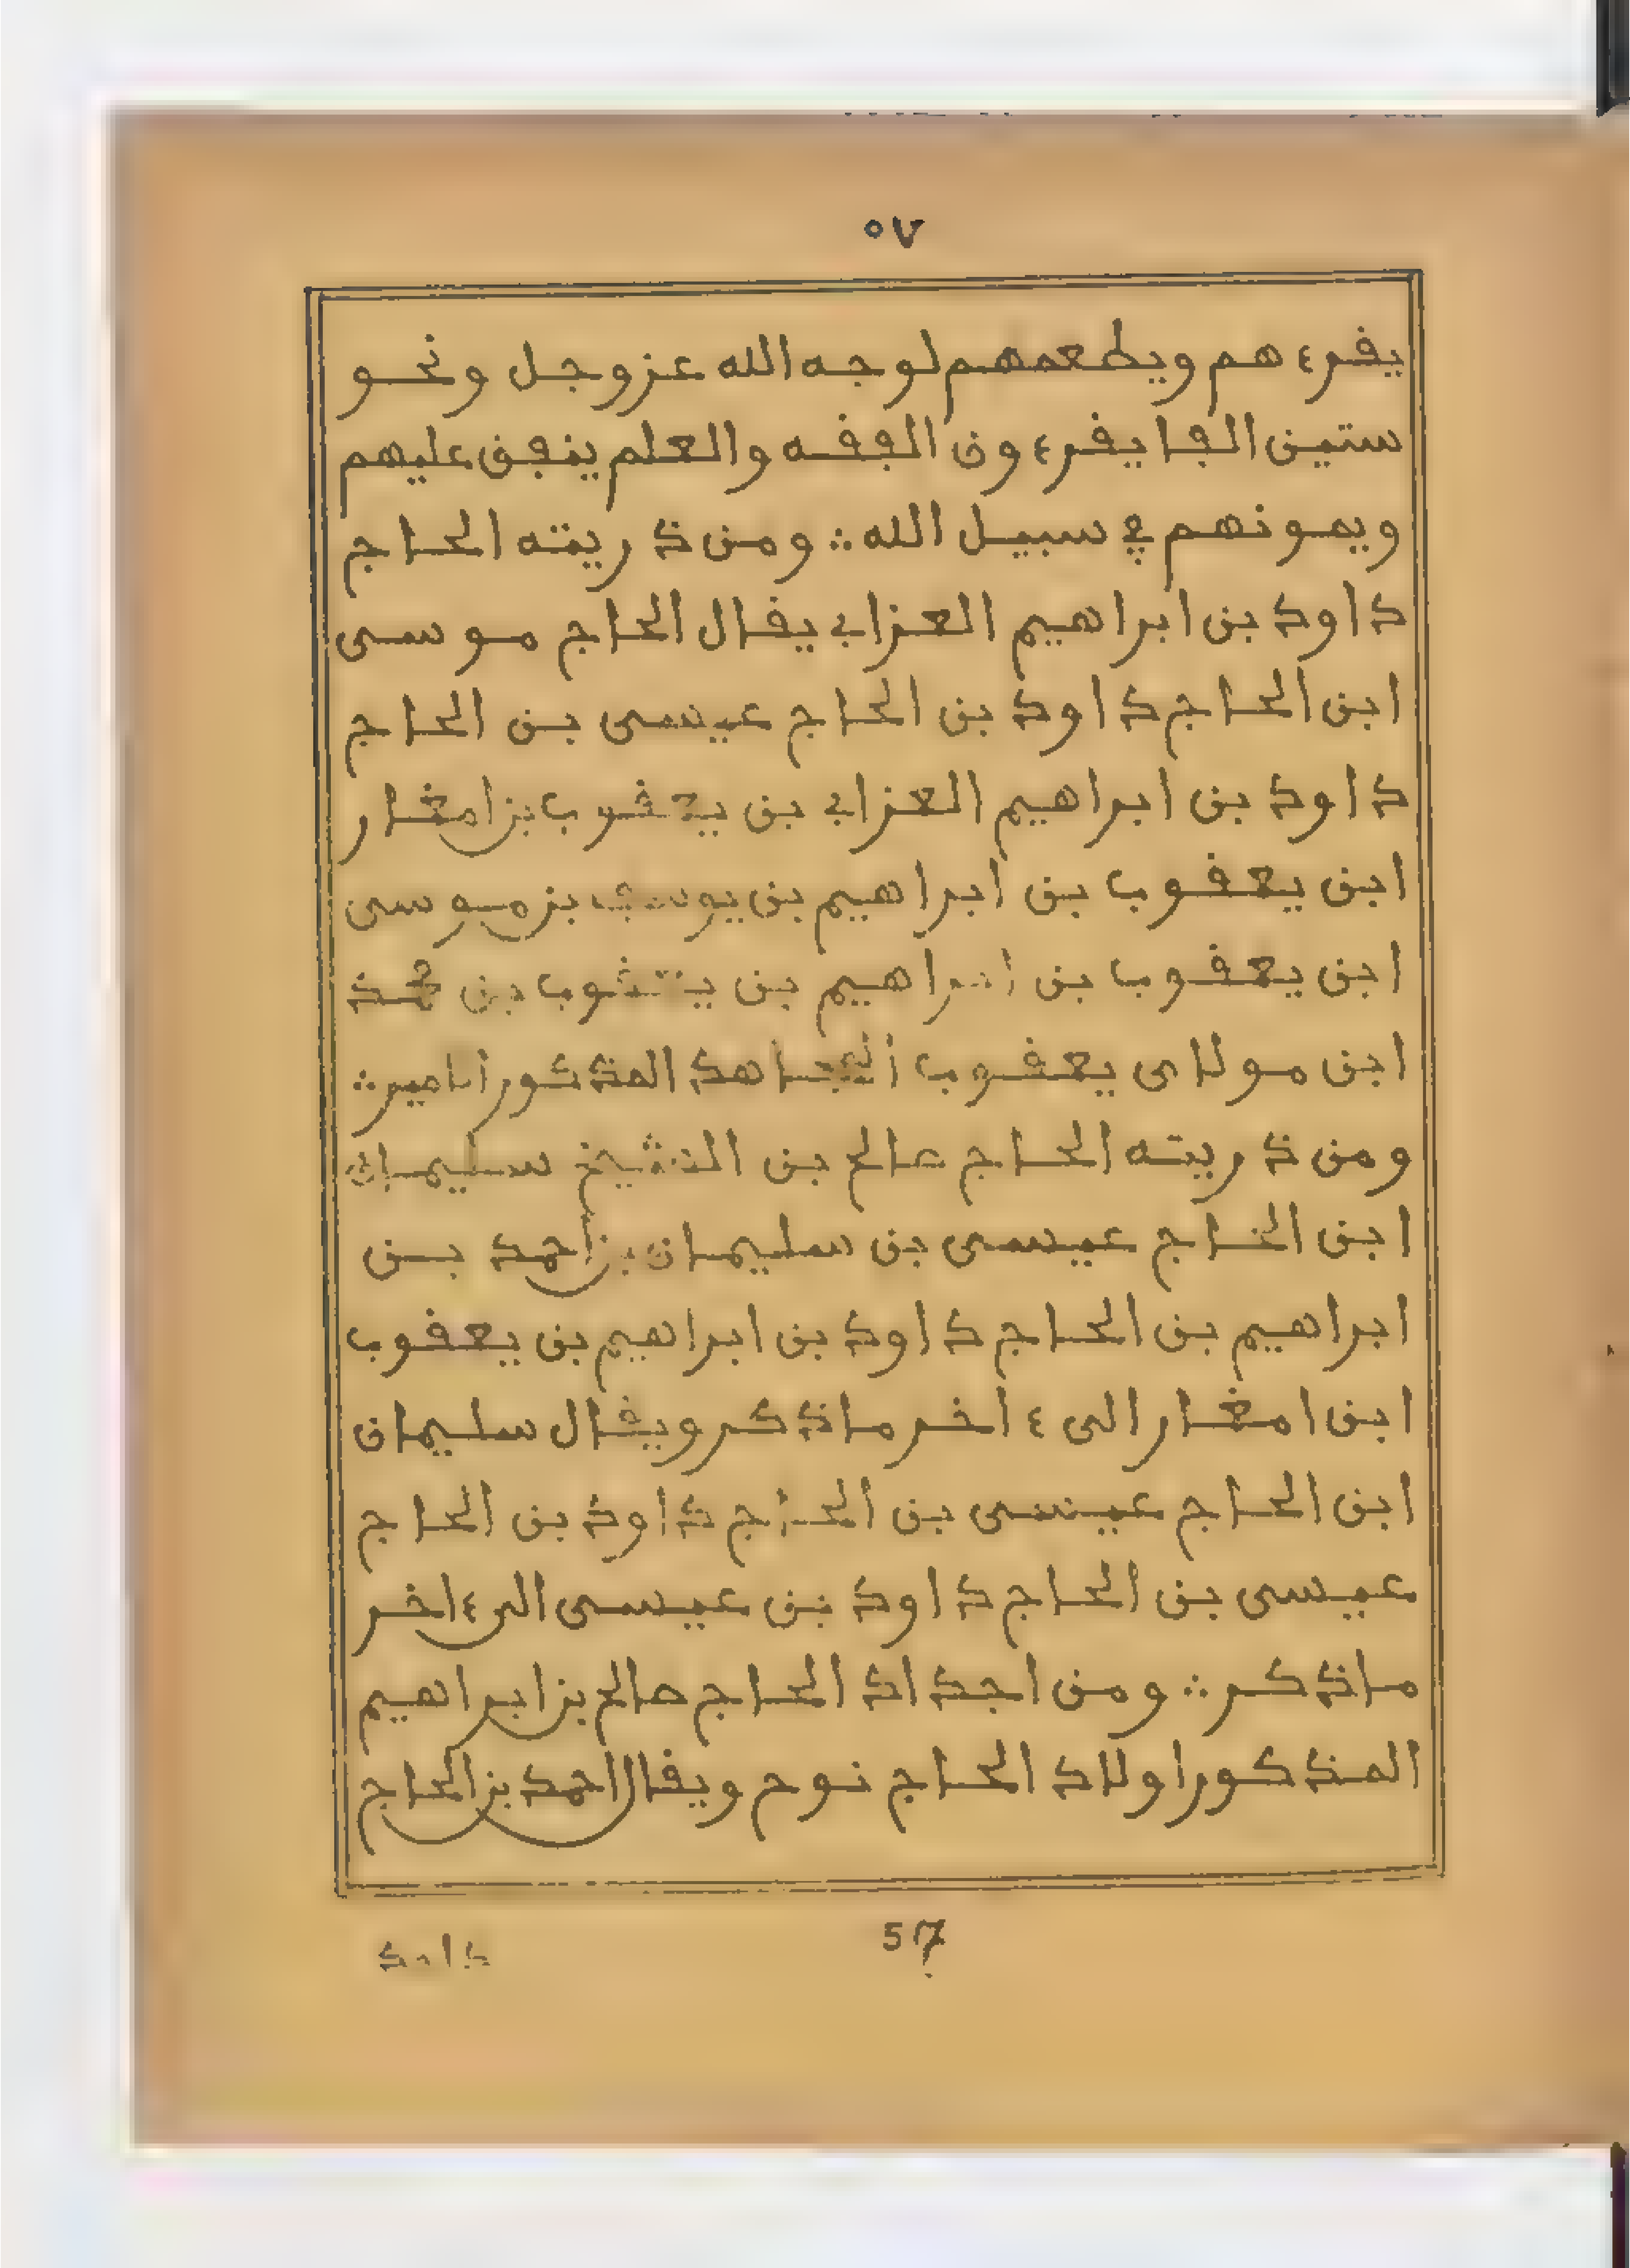 ٥٧
يقرءهم ويطعمهم لوجه الله عز وجل ونحو
ستين الفا يقرءون الفقه والعلم ينفق عليهم
ويمونهم في سبيل الله ؞ ومن ذريته الحاج
داود بن ابراهيم العزابي يقال الحاج موسى
ابن الحاج داود بن الحاج عيسى بن الحاج
داود بن ابراهيم العزابي بن يعقوب بن امغار
ابن يعقوب بن ابراهيم بن يوسف بن موسى
ابن يعقوب بن ابراهيم بن يعقوب بن محمد
ابن مولاى يعقوب المجاهد المذكور امامير ؞
ومن ذريته الحاج صالح بن الشيخ سليمان
ابن الحاج عيسى بن سليمان بن احمد بن
ابراهيم بن الحاج داود بن ابراهيم بن يعقوب
ابن امغار الى ءاخر ماذكر ويقال سليمان
ابن الحاج عيسى بن الحاج داود بن الحاج
عيسى بن الحاج داود بن عيسى الى ءاخر
ماذكر ؞ ومن اجداد الحاج صالح بن ابراهيم
المذكور اولاد الحاج نوح ويقال احمد بن الحاج
57
داود